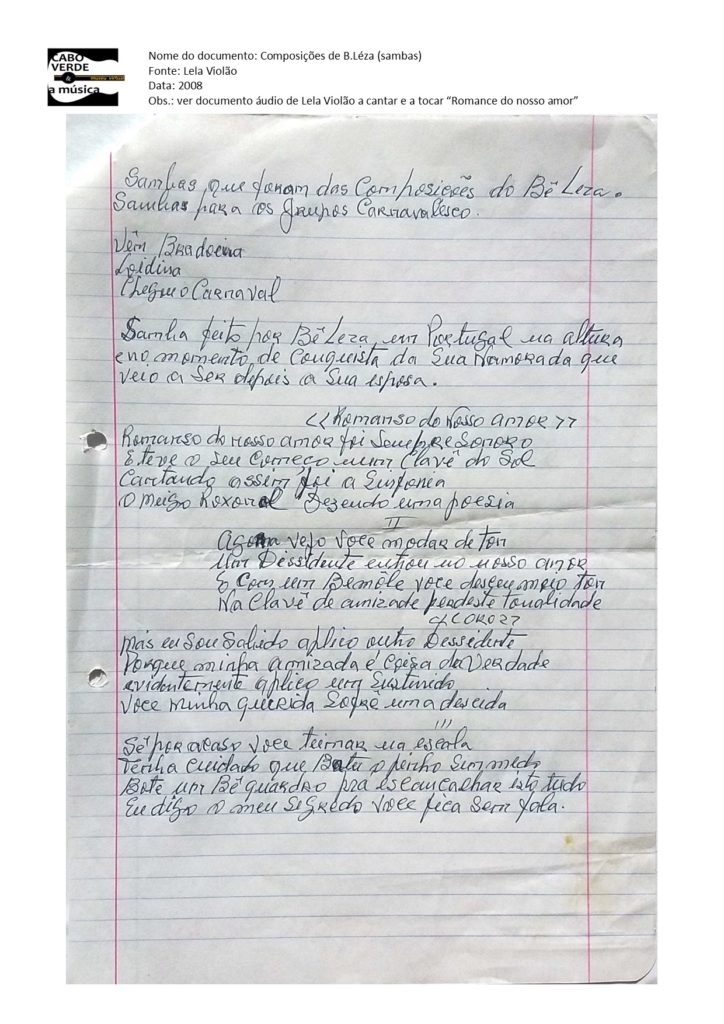 CABO
VERDE
&
museu virtual
a música
Nome do documento: Composições de B.Léza (sambas)
Fonte: Lela Violão
Data: 2008
Obs.: ver documento áudio de Lela Violão a cantar e a tocar “Romance do nosso amor”
Sambas que foram das Composicões do Bê Leza.
Sambas para os grupos Carnavalesco.
Vêm
Loidina
Chegou o Carnaval
Samba feito por Bê Leza, em Portugal na altura
e no momento de Conquista da Sua Namorada que
veio a Ser depois a Sua esposa.
<<Romanso do Nosso amor>>
Romanso do nosso amor foi Sempre Sonoro
Esteve o Seu Começo num Clavê do Sol
Cantando assim foi a Sinfonia
O meigo Roxonol Dezendo uma poesia
II
Agora vejo voce modar de ton
Um Dissidente entrou no nosso amor
E Com um Bemôle voce desceu meio ton
Na Clavê de amizade perdeste tonalidade
<<CORO>>
Mas eu Sou Sabido aplico outro Dessidente
Porque minha amizada é Coisa da Verdade
evidentemente aplico um Sustunido
Voce minha querida Sofre uma descida
III
Sê por acaso voce teimar na escala
Tenha Cuidado que Batu o pinho Sim medo
Bote um Bê quardro pra escancalhar isto tudo
Eu digo o meu Segredo voce fica Sem fala.